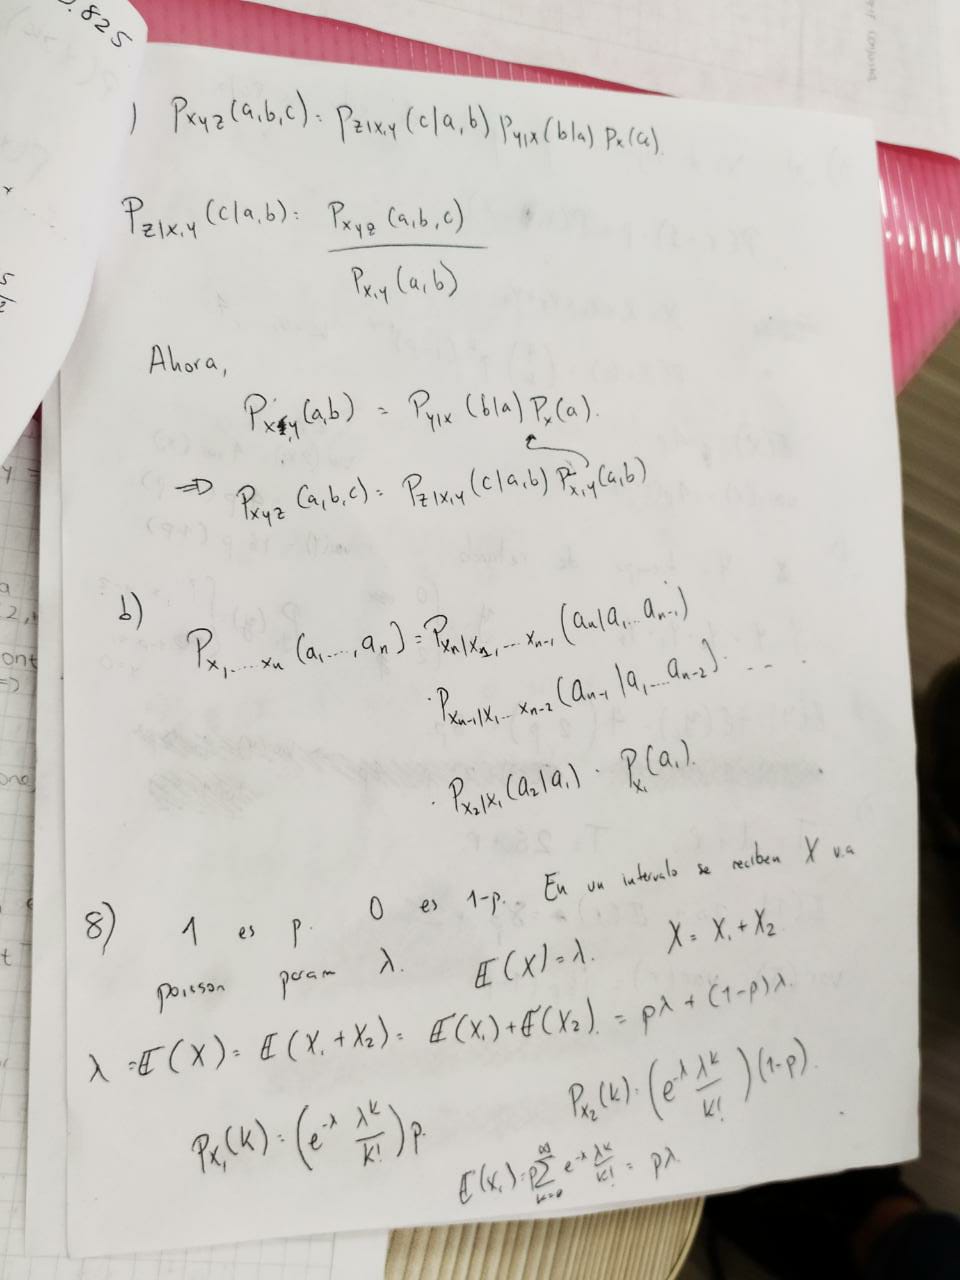 .825
) P_{XYZ}(a,b,c) = P_{Z|X,Y}(c|a,b) P_{Y|X}(b|a) P_X(a).
P_{Z|X,Y}(c|a,b) = \frac{P_{XYZ}(a,b,c)}{P_{X,Y}(a,b)}
Ahora,
P_{X,Y}(a,b) = P_{Y|X}(b|a) P_X(a).
⇒ P_{XYZ}(a,b,c) = P_{Z|X,Y}(c|a,b) P_{X,Y}(a,b)
b) P_{X_1,...,X_n}(a_1...,a_n) = P_{X_n|X_1,...X_{n-1}}(a_n|a_1...a_{n-1})
· P_{X_{n-1}|X_1...X_{n-2}}(a_{n-1}|a_1...a_{n-2}) · ...
· P_{X_2|X_1}(a_2|a_1) · P_{X_1}(a_1).
8) 1 es p. 0 es 1-p. En un intervalo se reciben X v.a
poisson param λ. E(X)=λ. X = X_1 + X_2
λ = E(X) = E(X_1+X_2) = E(X_1)+E(X_2). = pλ + (1-p)λ.
P_{X_1}(k) = (e^{-λ} \frac{λ^k}{k!}) p. P_{X_2}(k) = (e^{-λ} \frac{λ^k}{k!})(1-p).
E(X_1) = p\sum_{k=0}^{∞} e^{-λ} \frac{λ^k}{k!} = pλ